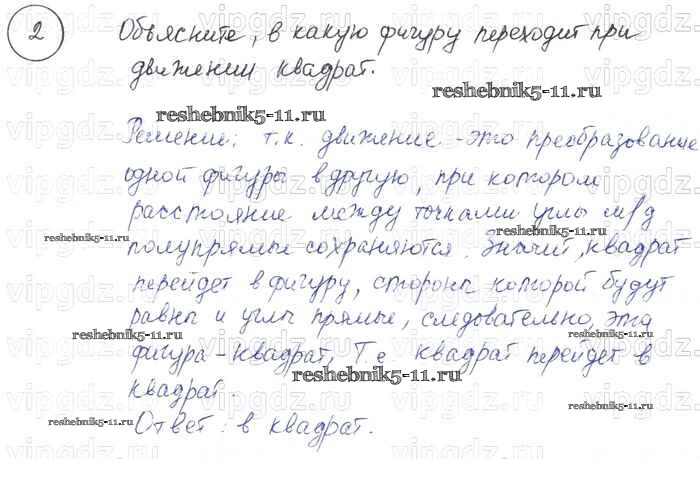 2 Объясните, в какую фигуру переходит при
движении квадрат.
reshebnik5-11.ru
Решение: т.к. движение - это преобразование
одной фигуры в другую, при котором
расстояние между точками углы м/д
reshebnik5-11.ru
полупрямые сохраняются. Значит, квадрат
перейдет в фигуру, стороны которой будут
равны и углы прямые, следовательно, эта
reshebnik5-11.ru reshebnik5-11.ru
фигура - квадрат, Т.е. квадрат перейдет в
reshebnik5-11.ru
квадрат.
reshebnik5-11.ru reshebnik5-11.ru
Ответ: в квадрат.